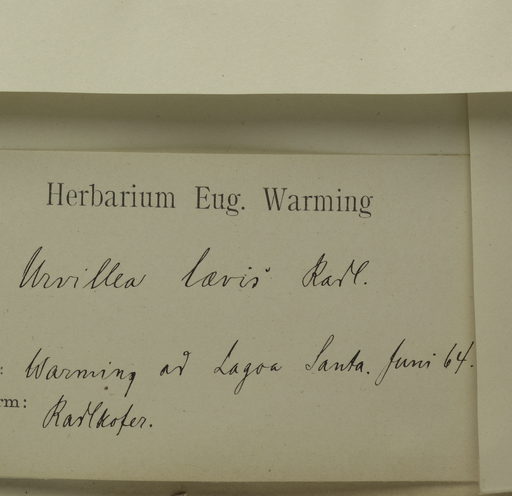 Herbarium Eug. Warming
Urvillea lævis Radl.
: Warming ad Lagoa Santa. Juni 64.
rm: Radlkofer.